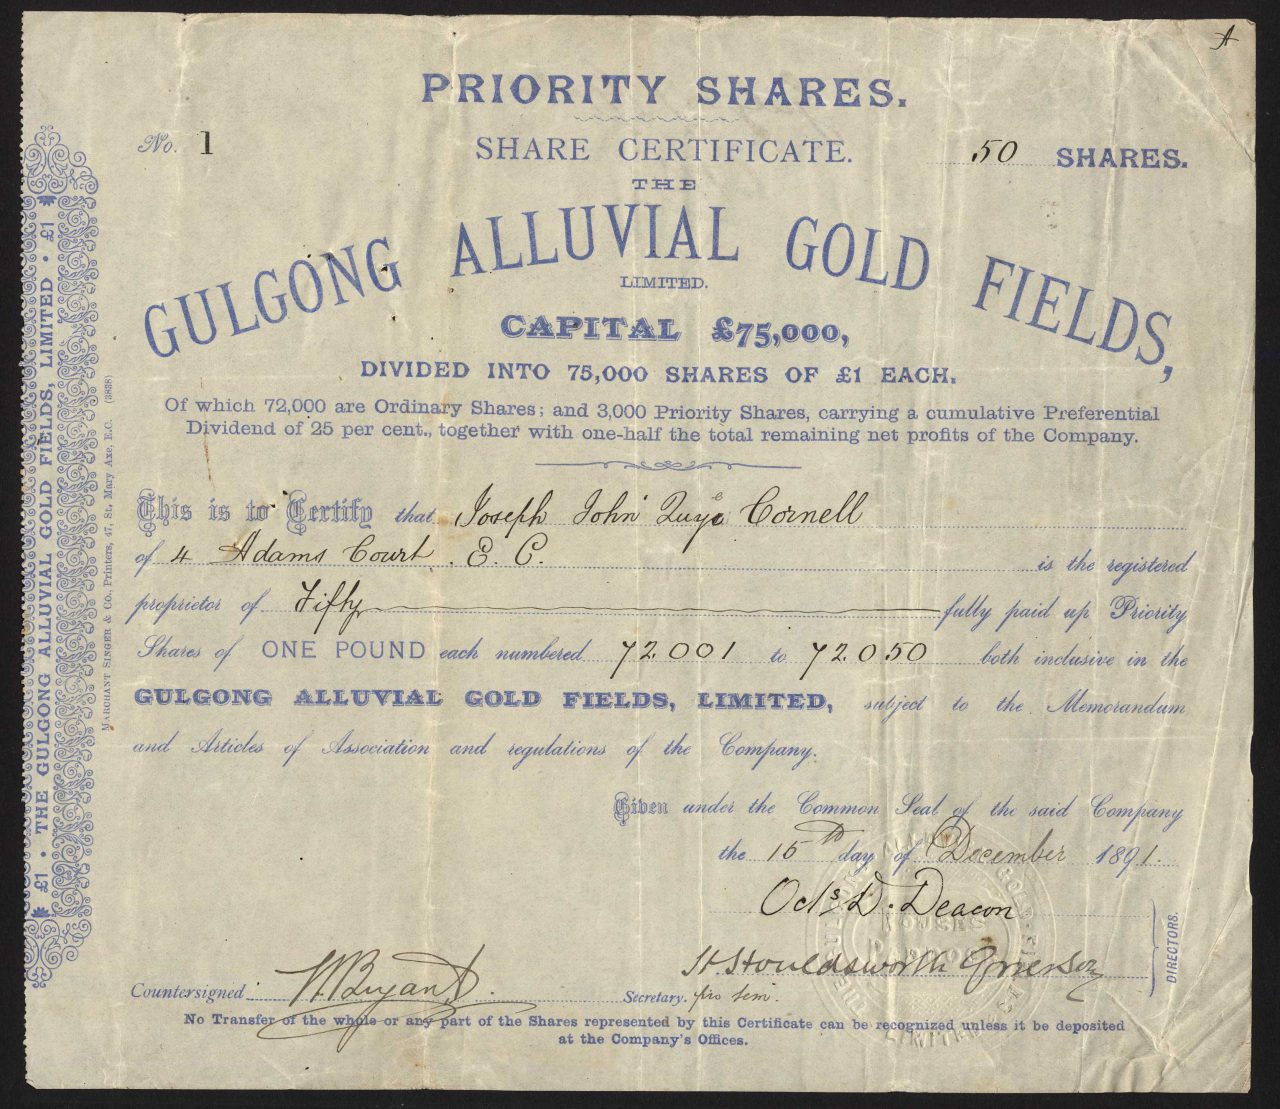 A
PRIORITY SHARES.
No. 1
SHARE CERTIFICATE.
50 SHARES.
THE
GULGONG ALLUVIAL GOLD FIELDS,
LIMITED.
CAPITAL £75,000,
DIVIDED INTO 75,000 SHARES OF £1 EACH.
Of which 72,000 are Ordinary Shares; and 3,000 Priority Shares, carrying a cumulative Preferential
Dividend of 25 per cent., together with one-half the total remaining net profits of the Company.
This is to Certify that Joseph John Quye Cornell
of 4 Adams Court. E. C. is the registered
proprietor of Fifty fully paid up Priority
Shares of ONE POUND each numbered 72.001 to 72.050 both inclusive in the
GULGONG ALLUVIAL GOLD FIELDS, LIMITED, subject to the Memorandum
and Articles of Association and regulations of the Company.
Given under the Common Seal of the said Company
the 15th day of December 1891.
D. Deacon
H Stouldsworth Grierson
DIRECTORS.
Countersigned Bryant
Secretary. pro tem.
No Transfer of the whole or any part of the Shares represented by this Certificate can be recognized unless it be deposited
at the Company's Offices.
£1 · THE GULGONG ALLUVIAL GOLD FIELDS, LIMITED · £1
MARCHANT SINGER & CO., Printers, 47, St. Mary Axe, E.C. (3838)